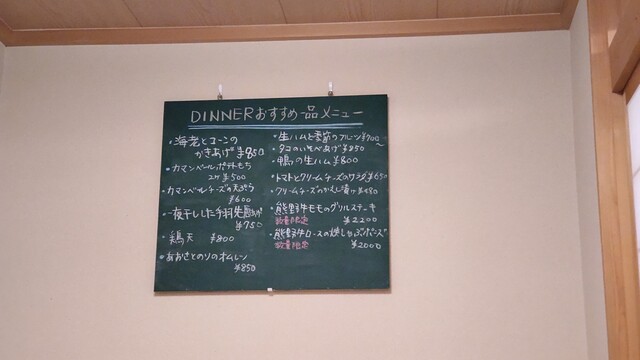 DINNERおすすめ一品メニュー
・海老とコーンの
かきあげ ¥850
・カマンベールポテトもち
2ケ ¥500
・カマンベールチーズの天ぷら
¥600
・一夜干しした手羽先唐あげ
¥750
・鶏天 ¥800
・あおさとのりのオムレツ
¥850
・生ハムと季節のフルーツ ¥900〜
・タコのいそべあげ ¥850
・鴨の生ハム ¥800
・トマトとクリームチーズのサラダ ¥650
・クリームチーズの ¥480
・熊野牛モモのグリルステーキ
数量限定 ¥2200
・熊野牛ロースの焼しゃぶポンズ
数量限定 ¥2000